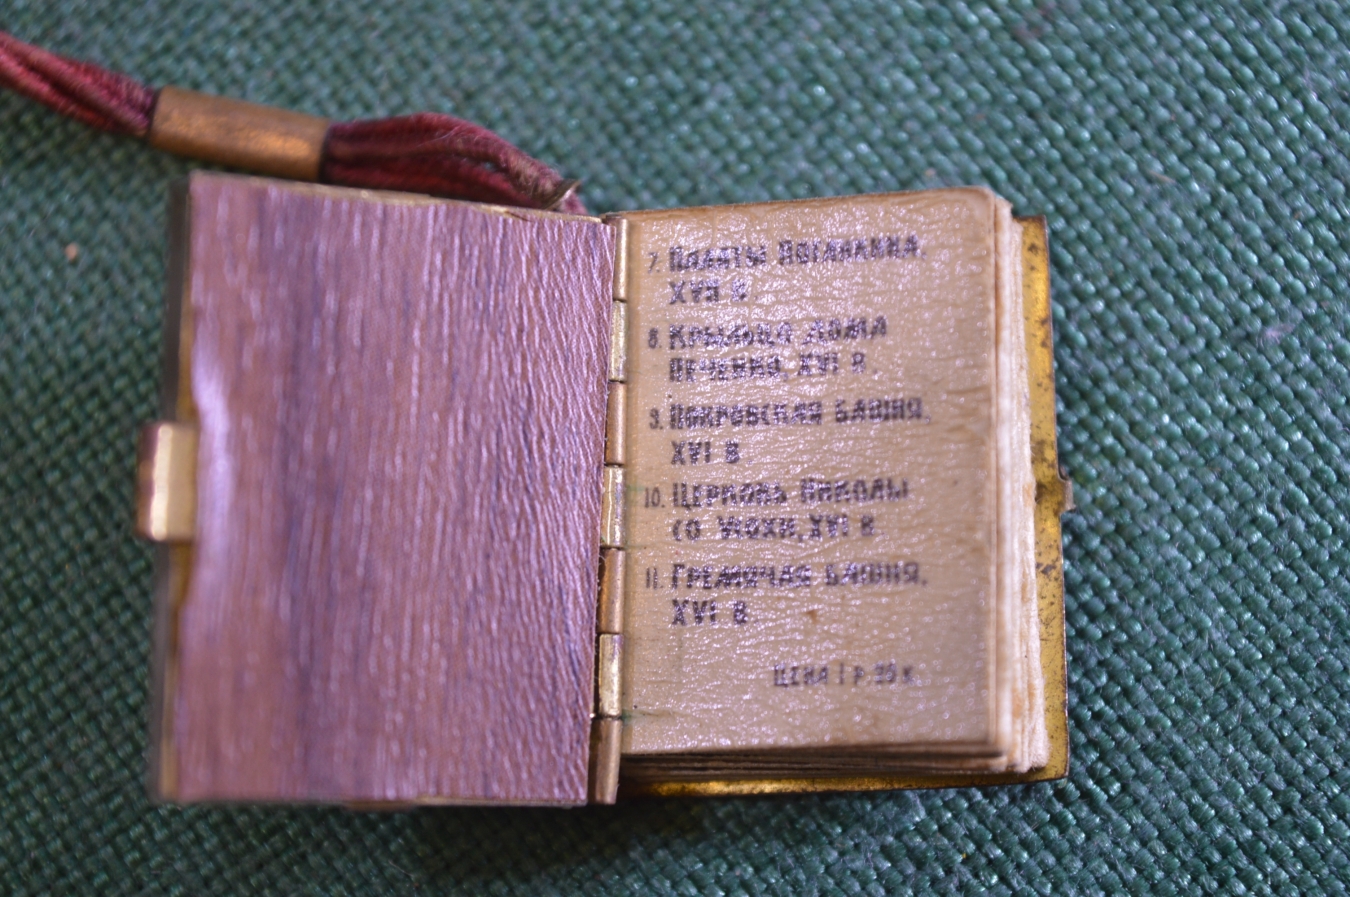 7. Палаты Поганкина,
XVII в
8. Крыльцо дома
Печенко, XVI в.
9. Покровская башня,
XVI в
10. Церковь Николы
со Усохи, XVI в
11. Гремячая башня,
XVI в
Цена 1 р. 25 к.